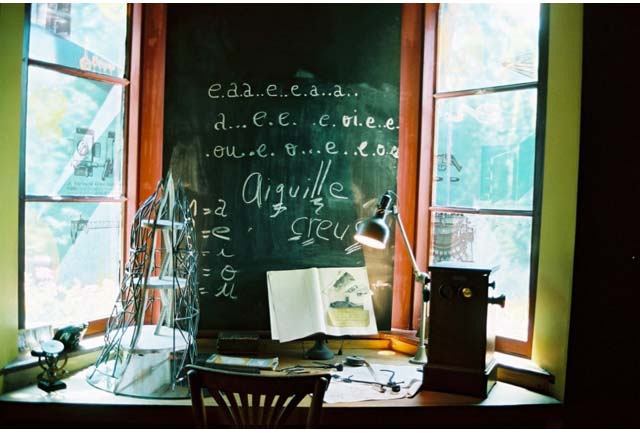 e.a.a..e..e.a..a..
a...e.e. .e.oi.e..e.
.ou..e. o...e..e.o.e
Aiguille
creu
1 = a
= e
= i
= o
= u